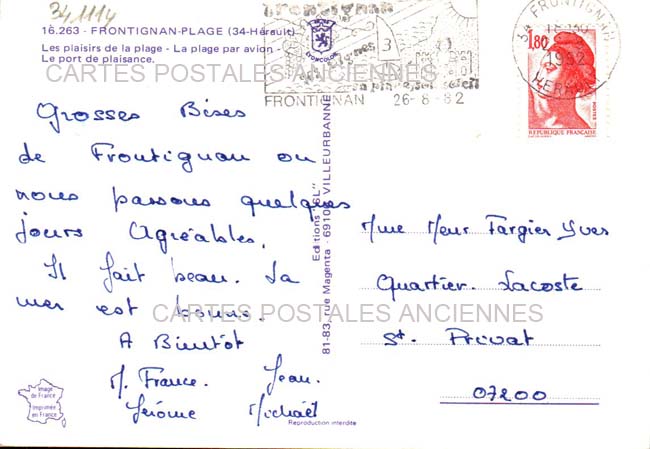 341114
16.263 - FRONTIGNAN-PLAGE (34-Hérault)
Les plaisirs de la plage - La plage par avion -
Le port de plaisance.
CARTES POSTALES ANCIENNES
Frontignan
LYONCOLOR
sa plage, son soleil
FRONTIGNAN 26-8-82
34 FRONTIGNAN
1982
HERAULT
1,80
POSTES
REPUBLIQUE FRANÇAISE
Grosses Bises
de Frontignan ou
nous passons quelques
jours Agréables.
Il fait beau. La
mer est bonne.
A Bientôt
M. France. Jean.
Jérôme Michaël
Editions "SL"
81-83, rue Magenta - 69100 VILLEURBANNE
Mme Meur Fargier Yves
Quartier Lacoste
CARTES POSTALES ANCIENNES
St. Privat
07200
Image
de France
Imprimée
en France
Reproduction interdite